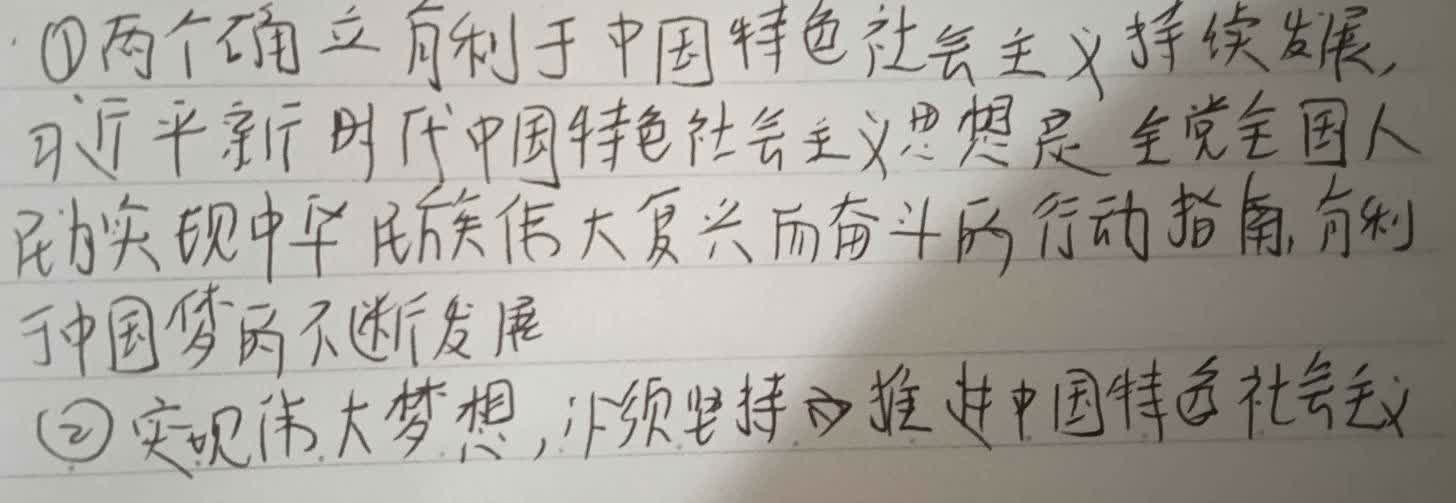 ①两个确立有利于中国特色社会主义持续发展,
习近平新时代中国特色社会主义思想是全党全国人
民为实现中华民族伟大复兴而奋斗的行动指南,有利
于中国梦的不断发展
②实现伟大梦想,必须坚持推进中国特色社会主义